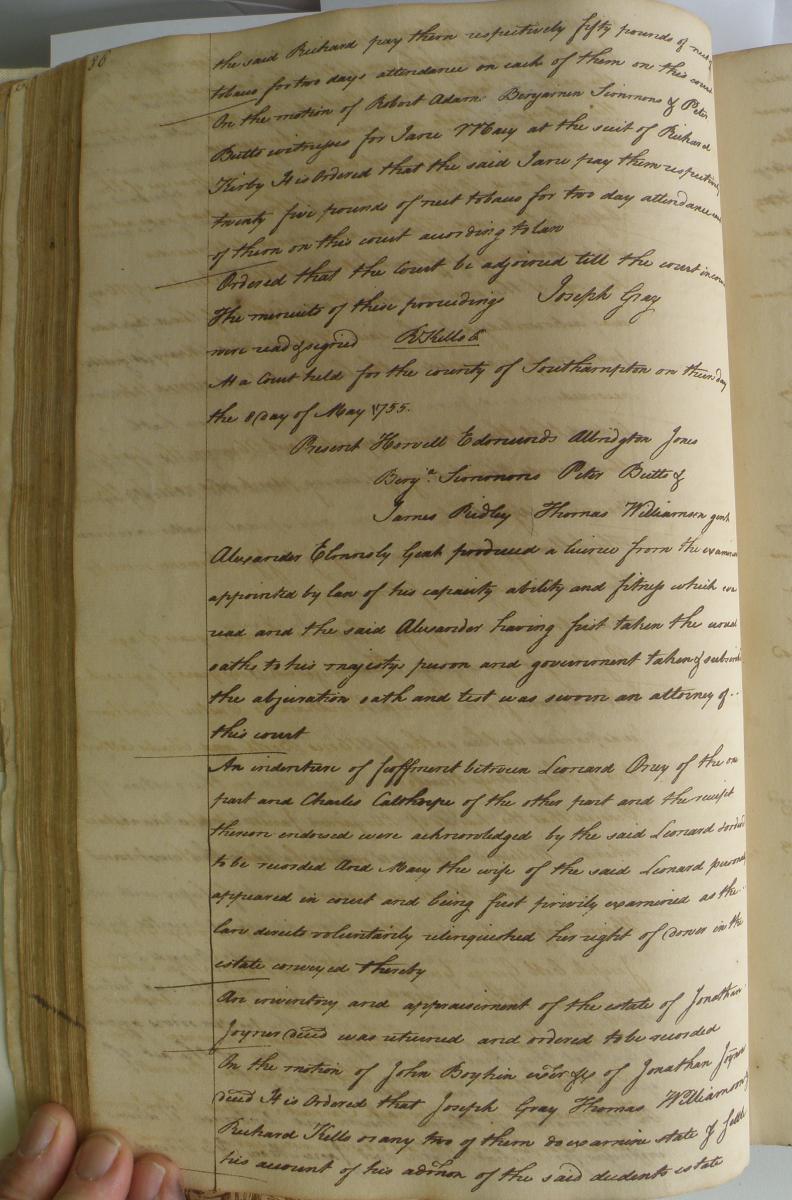 36
the said Richard pay them respectively fifty pounds of nett
tobaco for two days attendance on each of them on this court
On the motion of Robert Adam Benjamin Simmons & Peter
Butts witnesses for Jane at the suit of Richard
Kirby It is Ordered that the said Jane pay them respectively
twenty five pounds of nett tobaco for two day attendance
of them on this court according to law
Ordered that the Court be adjorned till the court in
The menuits of these proceedings Joseph Gray
were read & signed R Kello
At a Court held for the county of Southampton on thursday
the day of May 1755.
Present Howell Edmunds Albridgton Jones
Benja. Simmons Peter Butts &
James Ridley Thomas Williamson gent
Alexander Elmsly Gent produced a licence from the
appointed by law of his capacity ability and fitness which
read and the said Alexander having first taken the usual
oaths to his majestys person and government taken &
the abjuration oath and test was sworn an attorney of
this court
An indenture of feoffment between Leonard of the one
part and Charles Calthorpe of the other part and the receipt
thereon endorsed were acknowledged by the said Leonard
to be recorded And Mary the wife of the said Leonard
appeared in court and being first privily examined as the
law directs voluntarily relinquished her right of dower in the
estate conveyed thereby
An inventory and appraisement of the estate of Jonathan
Joyner deced was returned and ordered to be recorded
On the motion of John Boykin of Jonathan Joyner
deced It is Ordered that Joseph Gray Thomas Williamson
Richard Kello or any two of them do examine state & settle
his account of his of the said decedents estate